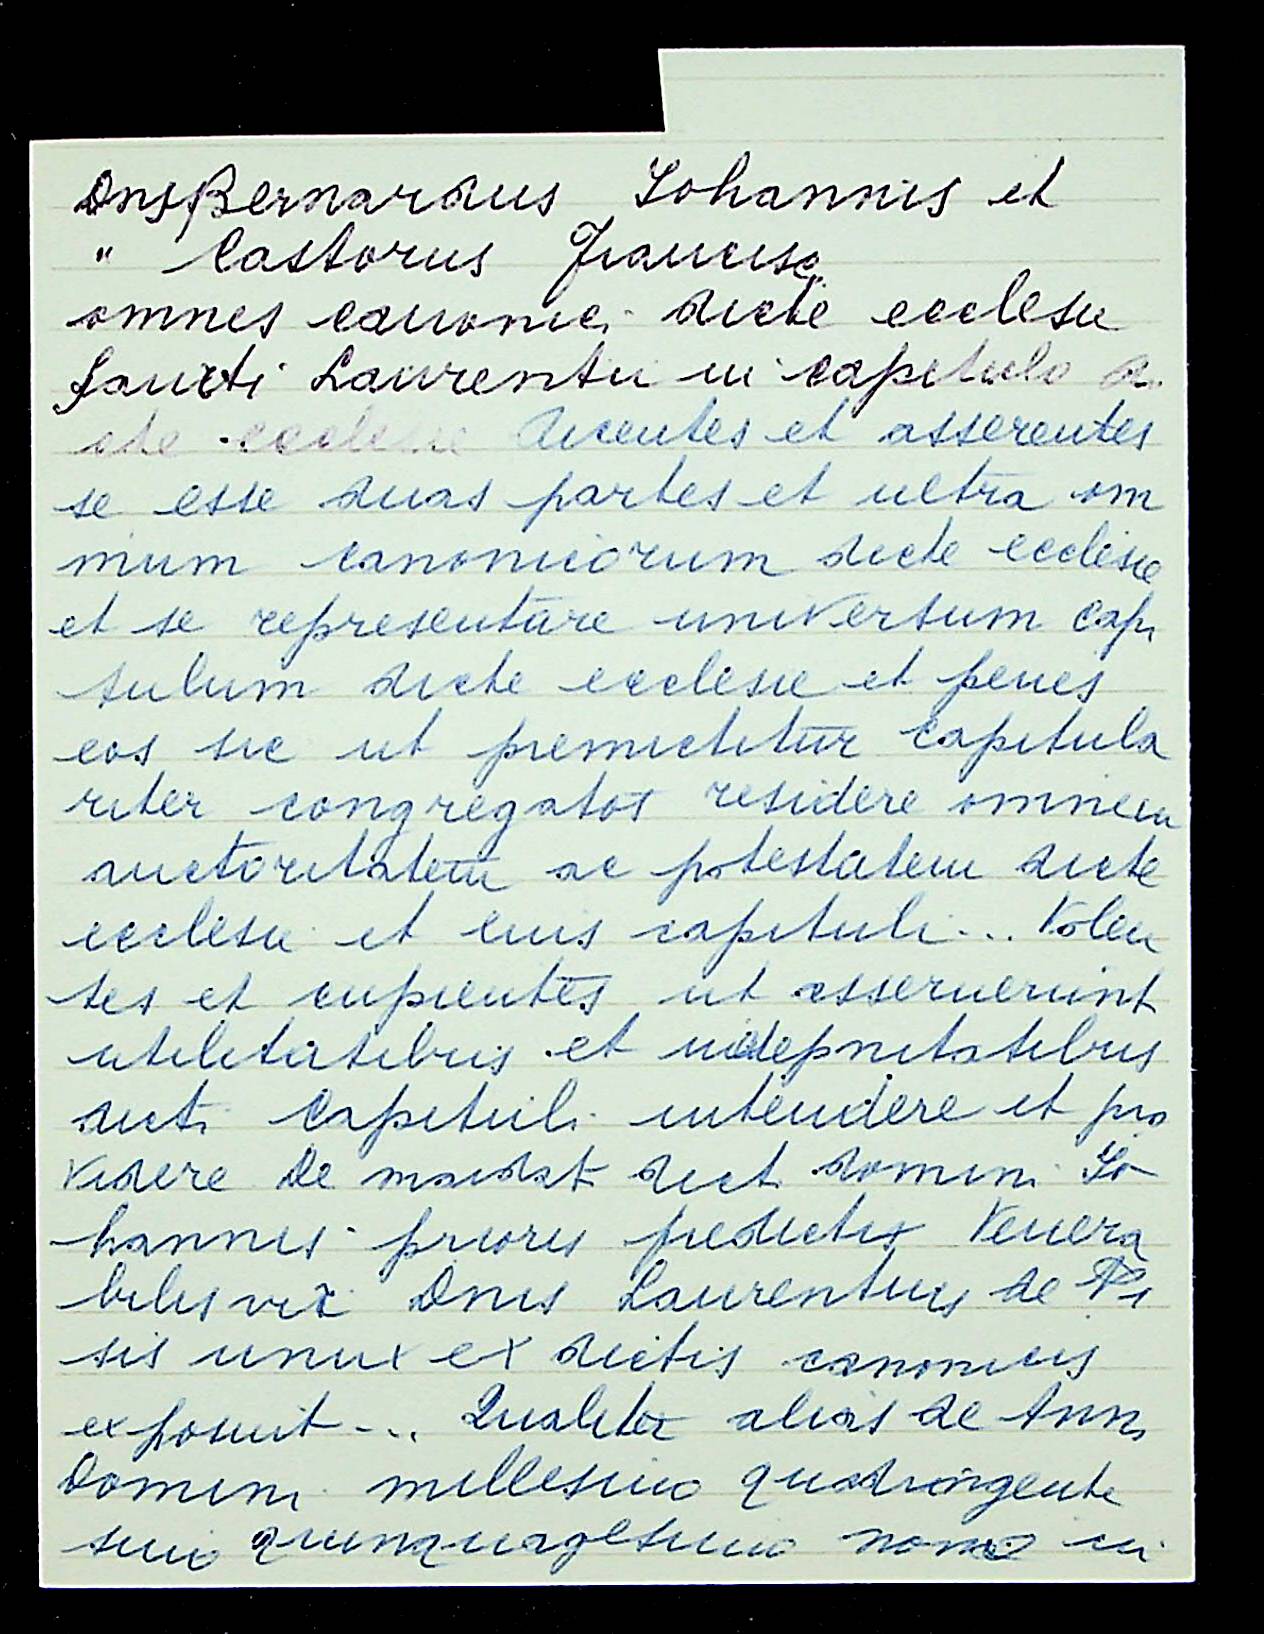 Dns Bernardus Iohannis et
" Castorus Francisci
omnes canonici dicte ecclesie
Sancti Laurentii in capitulo di
cte ecclesie dicentes et asserentes
se esse duas partes et ultra om
nium canonicorum dicte ecclesie
et se representare universum capi
tulum dicte ecclesie et penes
eos sic ut premictitur capitula
riter congregatos residere omnem
auctoritatem ac potestatem dicte
ecclesie et eius capituli... Volen
tes et cupientes ut asseruerunt
utilitatibus et indepnitatibus
dicti Capituli intendere et pro
videre de mandat dict domini Io
hannis prioris predictis Venera
bilis vir Dnus Laurentius de Pi
sis unus ex dictis canonicis
exposuit... Qualiter alias de Anno
Domini millesimo quadringente
simo quinquagesimo nono in